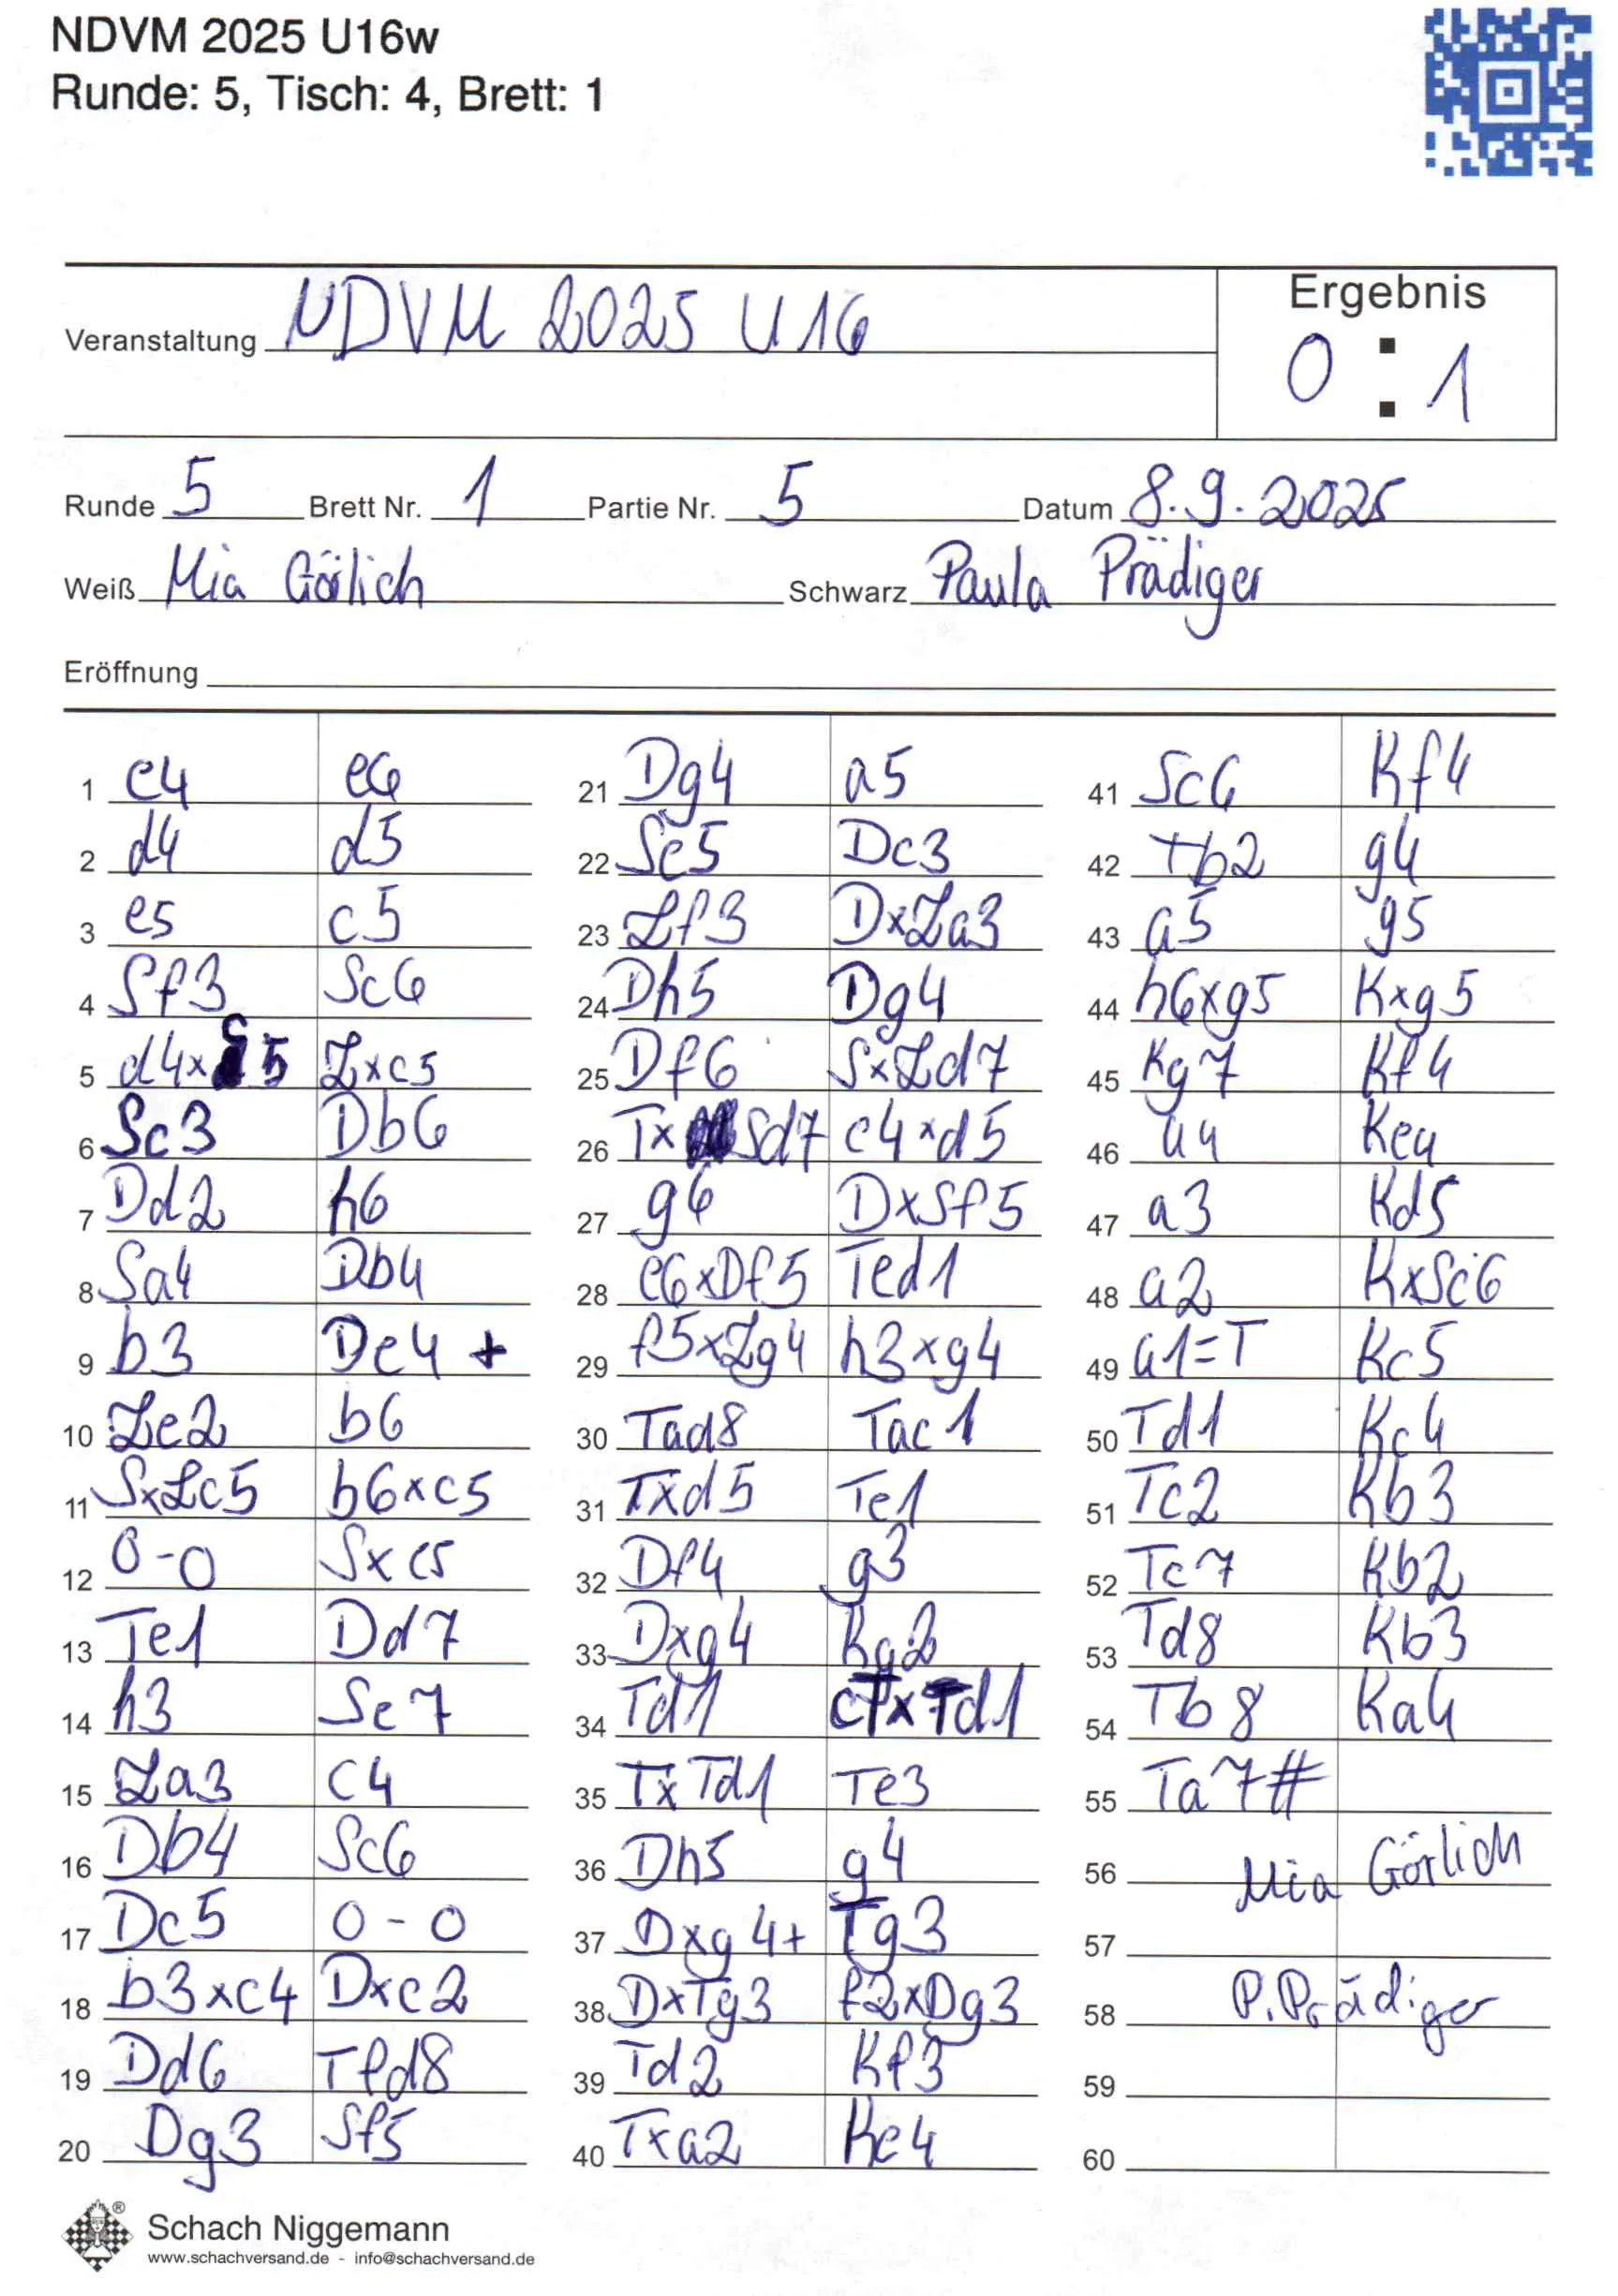 NDVM 2025 U16w
Runde: 5, Tisch: 4, Brett: 1
Veranstaltung NDVM 2025 U16
Ergebnis
0 : 1
Runde 5 Brett Nr. 1 Partie Nr. 5 Datum 8.9.2025
Weiß Mia Görlich Schwarz Paula Prädiger
Eröffnung
1 e4 e6
2 d4 d5
3 e5 c5
4 Sf3 Sc6
5 d4xc5 Lxc5
6 Sc3 Db6
7 Dd2 h6
8 Sa4 Db4
9 b3 De4 +
10 Le2 b6
11 SxLc5 b6xc5
12 0-0 Sxc5
13 Te1 Dd7
14 h3 Se7
15 La3 c4
16 Db4 Sc6
17 Dc5 0-0
18 b3xc4 Dxc2
19 Dd6 Tfd8
20 Dg3 Sf5
21 Dg4 a5
22 Se5 Dc3
23 Lf3 DxLa3
24 Dh5 Dg4
25 Df6 SxLd7
26 Tx Sd7 c4xd5
27 g6 DxSf5
28 e6xDf5 Ted1
29 f5xLg4 h3xg4
30 Tad8 Tac1
31 Txd5 Te1
32 Df4 g3
33 Dxg4 Kg2
34 Td1 cTxTd1
35 TxTd1 Te3
36 Dh5 g4
37 Dxg4+ Tg3
38 DxTg3 f2xDg3
39 Td2 Kf3
40 Txa2 Ke4
41 Sc6 Kf4
42 Tb2 g4
43 a5 g5
44 h6xg5 Kxg5
45 Kg7 Kf4
46 a4 Ke4
47 a3 Kd5
48 a2 KxSc6
49 a1=T Kc5
50 Td1 Kc4
51 Tc2 Kb3
52 Tc7 Kb2
53 Td8 Kb3
54 Tb8 Ka4
55 Ta7#
56 Mia Görlich
57
58 P. Prädiger
59
60
Schach Niggemann
www.schachversand.de - info@schachversand.de